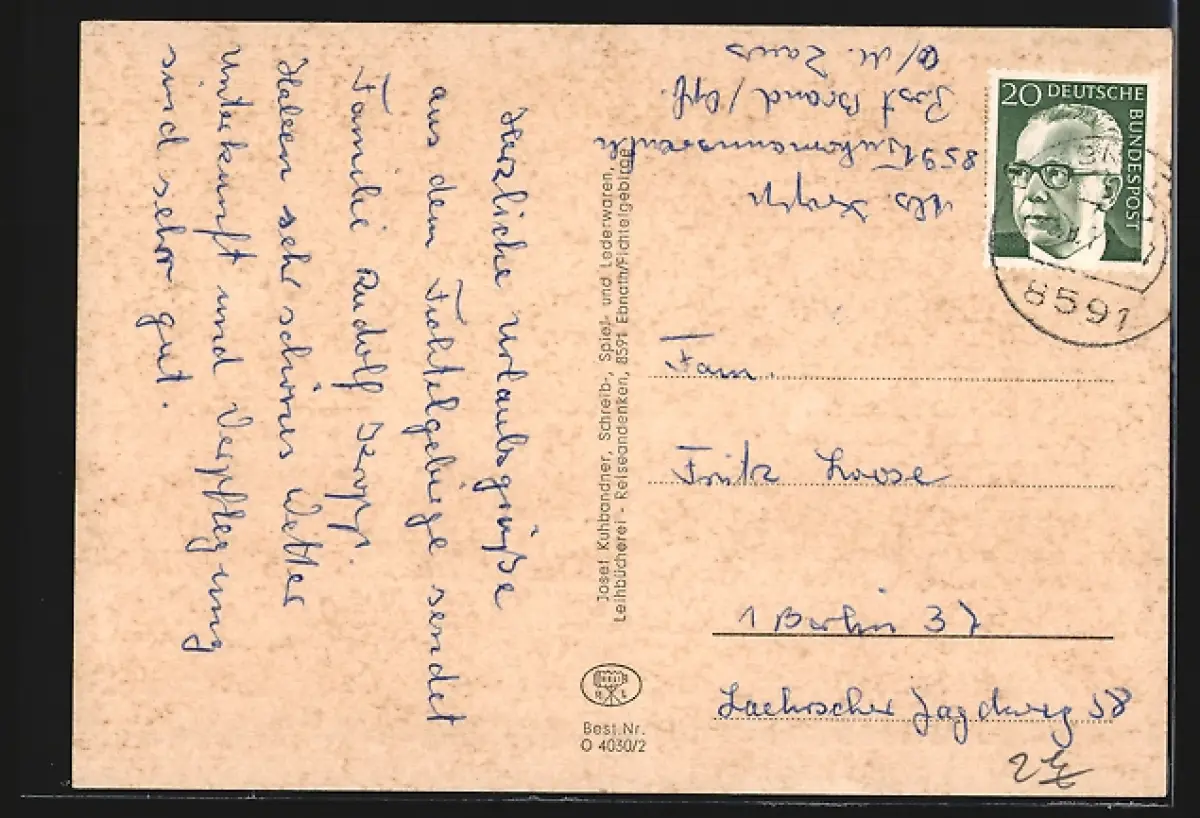 Herzliche Urlaubsgrüße
aus dem Fichtelgebirge sendet
Familie Rudolf Kropp.
Haben sehr schönes Wetter
Unterkunft und Verpflegung
sind sehr gut.
Josef Kuhbandner, Schreib-, Spiel- und Lederwaren,
Leihbücherei - Reiseandenken, 8591 Ebnath/Fichtelgebirge
Best.Nr.
O 4030/2
8591
Post Brand/Opf.
20 DEUTSCHE
BUNDESPOST
8591
Fam.
Fritz Loose
1 Berlin 37
Jagdweg 58